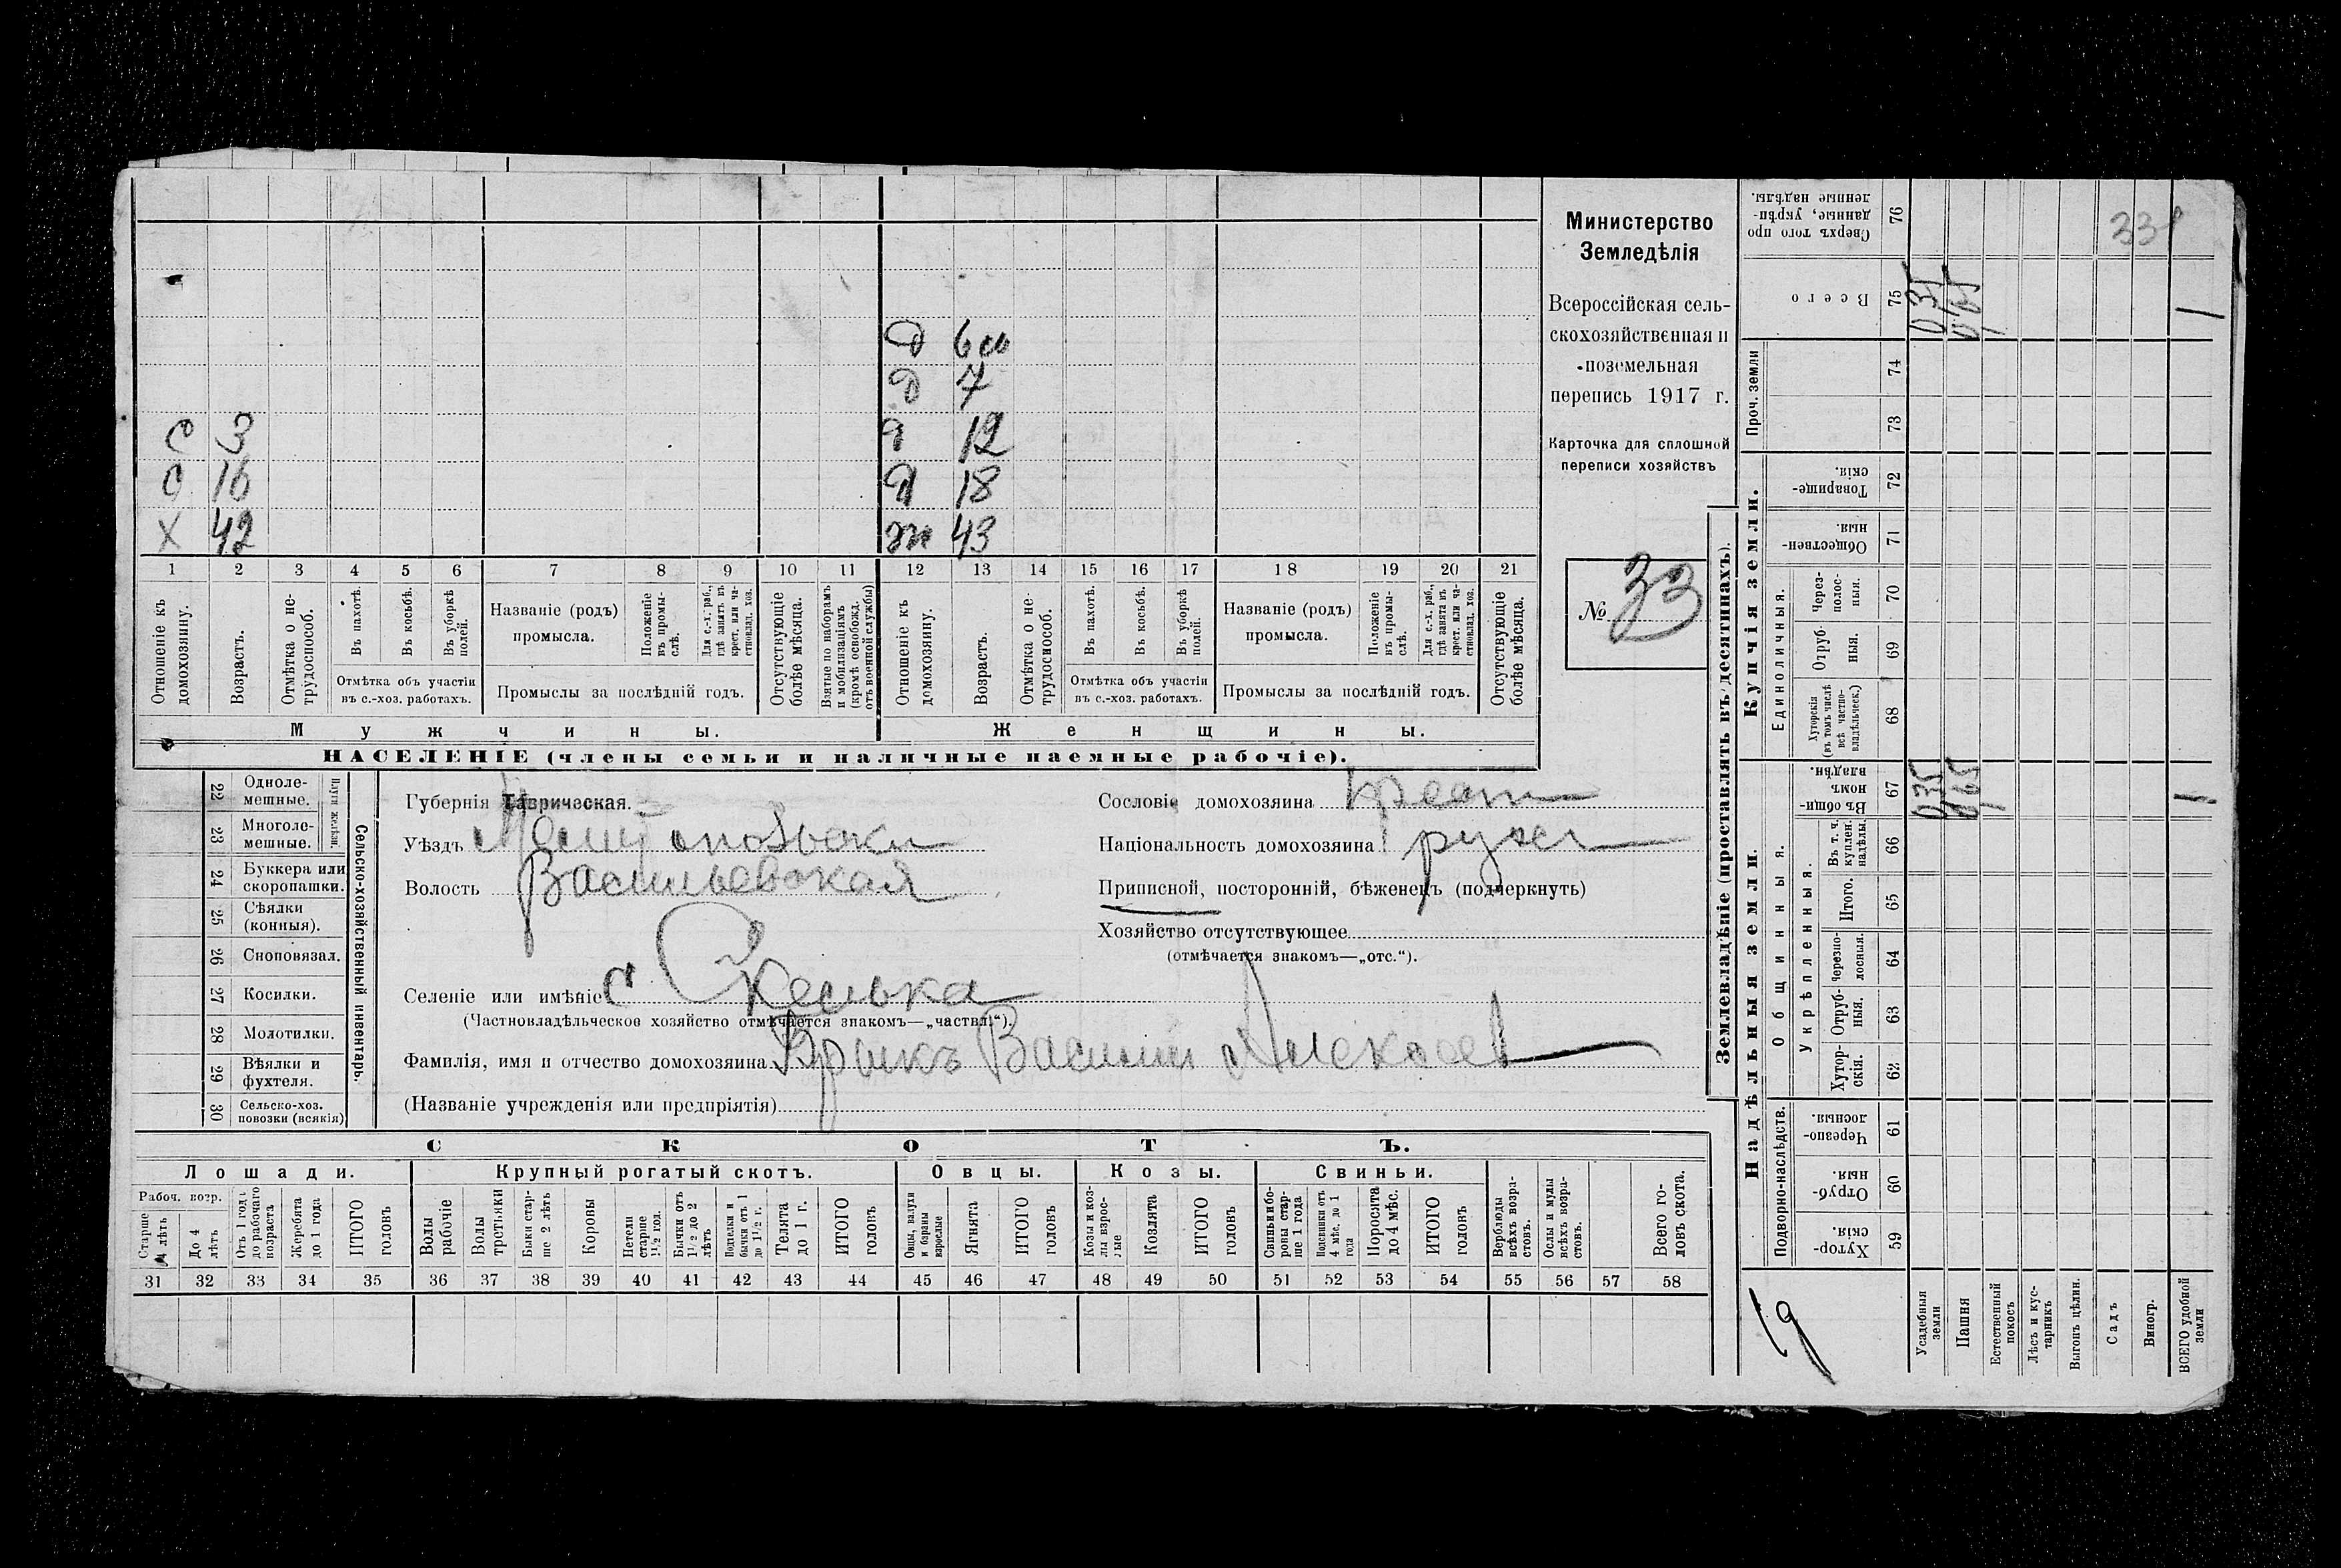 Министерство
Земледѣлія
Всероссійская сель-
скохозяйственная и
поземельная
перепись 1917 г.
Карточка для сплошной
переписи хозяйствъ
№ 33
С 3
С 16
Х 42
Д 6 м
Д 7
Д 12
Д 18
ж 43
1 2 3 4 5 6 7 8 9 10 11 12 13 14 15 16 17 18 19 20 21
Отношеніе къ домохозяину.
Возрастъ.
Отмѣтка о не-трудоспособ.
Въ пахотѣ.
Въ косьбѣ.
Въ уборкѣ полей.
Отмѣтка объ участіи въ с.-хоз. работахъ.
Названіе (родъ) промысла.
Положеніе въ промы-слѣ.
Для с.-х. раб., гдѣ занятъ въ крест. или ча-стновлад. хоз.
Промыслы за послѣдній годъ.
Отсутствующіе болѣе мѣсяца.
Взятые по наборамъ и мобилизаціямъ (кромѣ освобожд. отъ военной службы)
Отношеніе къ домохозяину.
Возрастъ.
Отмѣтка о не-трудоспособ.
Въ пахотѣ.
Въ косьбѣ.
Въ уборкѣ полей.
Отмѣтка объ участіи въ с.-хоз. работахъ.
Названіе (родъ) промысла.
Положеніе въ промы-слѣ.
Для с.-х. раб., гдѣ занята въ крест. или ча-стновлад. хоз.
Промыслы за послѣдній годъ.
Отсутствующіе болѣе мѣсяца.
Мужчины.
Женщины.
НАСЕЛЕНІЕ (члены семьи и наличные наемные рабочіе).
22 Одноле-мешные.
23 Многоле-мешные.
24 Буккера или скоропашки.
25 Сѣялки (конныя).
26 Сноповязал.
27 Косилки.
28 Молотилки.
29 Вѣялки и фухтеля.
30 Сельско-хоз. повозки (всякія)
Сельско-хозяйственный инвентарь.
Губернія Таврическая.
Уѣздъ
Волость Васильевская
Селеніе или имѣніе с Скелька
(Частновладѣльческое хозяйство отмѣчается знакомъ—„частвл.“).
Фамилія, имя и отчество домохозяина Василий Алексеев
(Названіе учрежденія или предпріятія)
Сословіе домохозяина крест
Національность домохозяина
Приписной, посторонній, бѣженецъ (подчеркнуть)
Хозяйство отсутствующее
(отмѣчается знакомъ—„отс.“).
СКОТЪ.
Лошади.
Крупный рогатый скотъ.
Овцы.
Козы.
Свиньи.
Рабоч. возр.
Старше 4 лѣтъ
До 4 лѣтъ
Отъ 1 года до рабочаго возраста
Жеребята до 1 года
ИТОГО головъ
Волы рабочіе
Волы третьяки
Быки стар-ше 2 лѣтъ
Коровы
Нетели старше 1½ пол.
Бычки отъ 1½ до 2 лѣтъ
Подтелки и бычки отъ 1 до 1½ г.
Телята до 1 г.
ИТОГО головъ
Овцы, валухи и бараны взрослые
Ягнята
ИТОГО головъ
Козы и коз-лы взрос-лые
Козлята
ИТОГО головъ
Свиньи и бо-ровы стар-ше 1 года
Подсвинки отъ 4 мѣс. до 1 года
Поросята до 4 мѣс.
ИТОГО головъ
Верблюды всѣхъ возра-стовъ.
Ослы и мулы всѣхъ возра-стовъ.
Всего го-ловъ скота.
31 32 33 34 35 36 37 38 39 40 41 42 43 44 45 46 47 48 49 50 51 52 53 54 55 56 57 58
Землевладѣніе (проставлять въ десятинахъ).
Надѣльныя земли.
Купчія земли.
Проч. земли
Подворно-наслѣдств.
Общинныя.
Укрѣпленныя.
Единоличныя.
76 Сверхъ того про данные, укрѣп-ленные надѣлы.
75 Всего
74
73
72 Товарище-скія.
71 Обществен-ныя.
70 Через-полос-ныя.
69 Отруб-ныя.
68 Хуторскія (въ томъ числѣ всѣ частно-владѣльческ.)
67 Въ общин-номъ владѣн.
66 Въ т. ч. куплен. надѣлы.
65 Итого.
64 Черезпо-лосныя.
63 Отруб-ныя.
62 Хутор-скія.
61 Черезпо-лосныя.
60 Отруб-ныя.
59 Хутор-скія.
Усадебныя земли
Пашня
Естественный покосъ
Лѣсъ и кус-тарникъ
Выгонъ цѣлин.
Садъ
Виногр.
ВСЕГО удобной земли
035
065
1
035
065
1
19